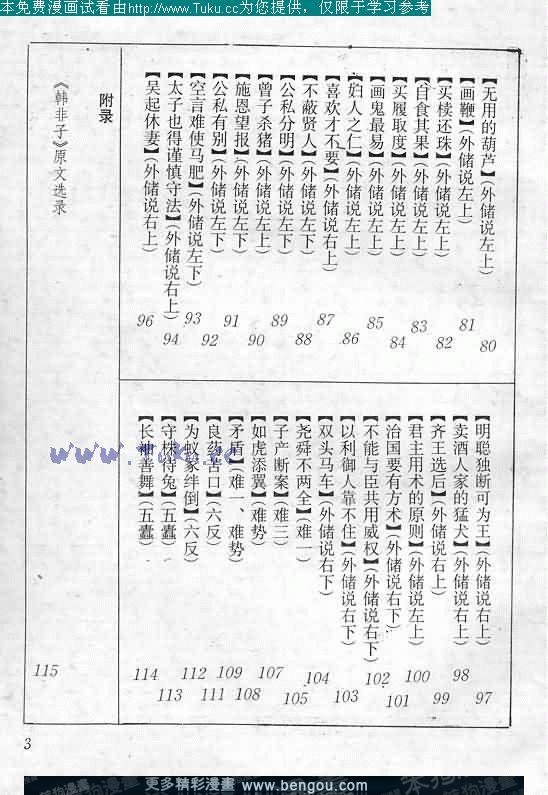 本免费漫画试看由http://www.Tuku.cc为您提供，仅限于学习参考
【无用的葫芦】（外储说左上） 80
【画鞭】（外储说左上） 81
【买椟还珠】（外储说左上） 82
【自食其果】（外储说左上） 83
【买履取度】（外储说左上） 84
【画鬼最易】（外储说左上） 85
【妇人之仁】（外储说左上） 86
【喜欢才不要】（外储说右上） 87
【不蔽贤人】（外储说左下） 88
【公私分明】（外储说左下） 89
【曾子杀猪】（外储说左上） 90
【施恩望报】（外储说左下） 91
【公私有别】（外储说左下） 92
【空言难使马肥】（外储说左下） 93
【太子也得谨慎守法】（外储说右上） 94
【吴起休妻】（外储说右上） 96
【明聪独断可为王】（外储说右上） 97
【卖酒人家的猛犬】（外储说右上） 98
【齐王选后】（外储说右上） 99
【君主用术的原则】（外储说左上） 100
【治国要有方术】（外储说右下） 101
【不能与臣共用威权】（外储说右下） 102
【以利御人靠不住】（外储说右下） 103
【双头马车】（外储说右下） 104
【尧舜不两全】（难一） 105
【子产断案】（难三） 107
【如虎添翼】（难势） 108
【矛盾】（难一、难势） 109
【良药苦口】（六反） 111
【为蚁冢绊倒】（六反） 112
【守株待兔】（五蠹） 113
【长袖善舞】（五蠹） 114
附录
《韩非子》原文选录 115
www.Tuku.cc
3
更多精彩漫畫 www.bengou.com